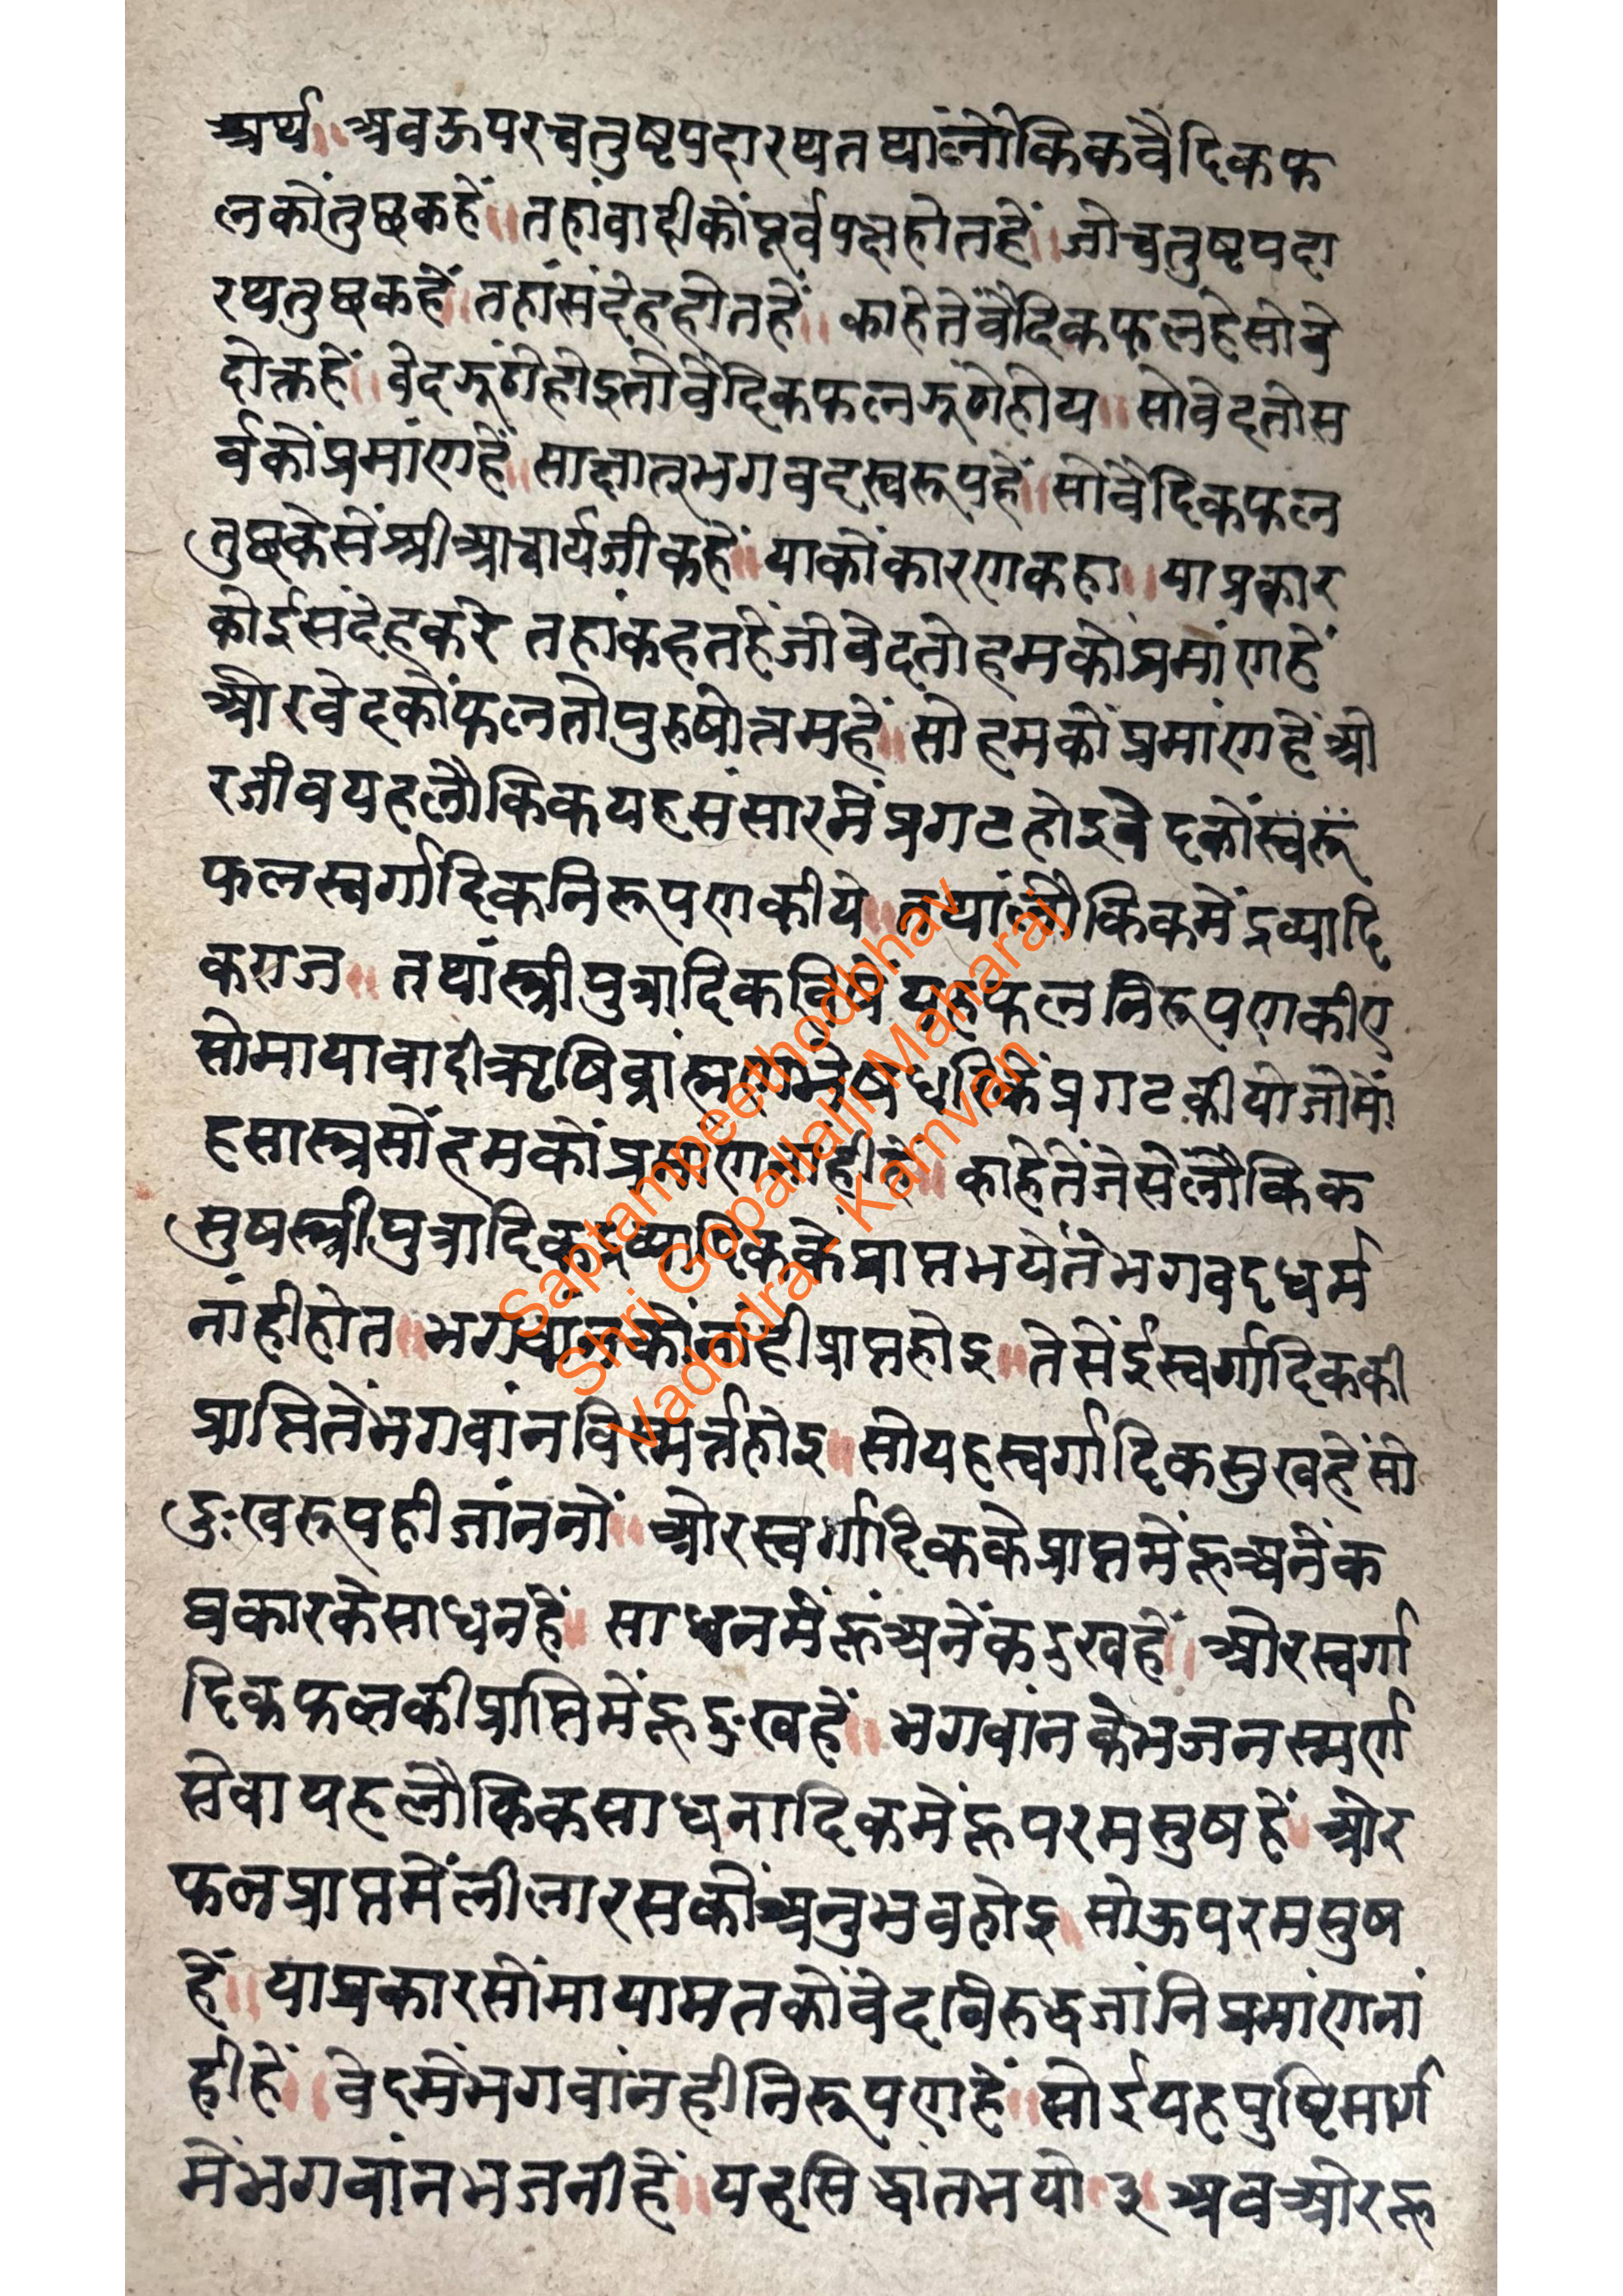 अर्थ॥ अवऊपरचतुष्टपदारथतथांलौकिकवैदिकफ
लकोंतुछकहें॥ तहांवादीकोंपूर्वपक्षहोतहें॥ जोचतुष्टपदा
रथतुछकहें॥ तहांसंदेहहोतहें॥ काहेतेंवैदिकफलहेसोवे
दोक्तहें॥ वेदझूंठोहोइतोवैदिकफलझूंठोहोय॥ सोवेदतोस
र्वकोंप्रमांणहें॥ साक्षातूभगवदस्वरूपहें॥ सोवैदिकफल
तुछकेसेंश्रीआचार्यजीकहें॥ याकोंकारणकहा॥ याप्रकार
कोईसंदेहकरे तहांकहतहेंजोवेदतोहमकोंप्रमांणहें
औरवेदकोंफलतोपुरुषोत्तमहें॥ सोहमकोंप्रमांणहेंओ
रजीवयहलौकिकयहसंसारमेंप्रगटहोइवेदकोंस्वरूं
फलस्वर्गादिकनिरूपणकीये॥ तथांलौकिकमेंद्रव्यादि
कराज॥ तथांस्त्रीपुत्रादिकविषेंयहफलनिरूपणकीए
सोमायावादीऋषिब्रांह्मण प्रगटकीयोजोमों
हसास्त्रसोंहमकोंप्रमांणनांहीहे॥ काहेतेंजेसेलौकिक
सुषस्त्रीपुत्रादिकद्रव्यादिककेप्राप्तभयेतेंभगवदधर्म
नांहीहोत॥ भगवांनकोंनांहीप्राप्तहोइ॥ तेसेंईस्वर्गादिककी
प्राप्तितेंभगवांनविस्मर्त्तहोइ॥ सोयहस्वर्गादिकसुखहेंसो
दुःखरूपहीजांननों॥ औरस्वर्गादिककेप्राप्तमेंहूअनेंक
प्रकारकेसाधनहें॥ साधनमेंहूंअनेंकदुखहें॥ औरस्वर्गा
दिकफलकीप्राप्तिमेंहूदुःखहें॥ भगवांनकेभजनस्मर्ण
सेवायहलौकिकसाधनादिकमेंहूपरमसुषहें॥ और
फलप्राप्तमेंलीलारसकोंअनुभवहोइ॥ सोऊपरमसुष
हें॥ याप्रकारसोंमायामतकोंवेदविरुद्धजांनिप्रमांणनां
हीहें॥ वेदमेंभगवांनहीनिरूपणहें॥ सोईयहपुष्टिमार्ग
मेंभगवांनभजनीहें॥ यहसिद्धांतभयो ३ अवऔरहू
Saptampeethodbhav
Shri Gopallalji Maharaj
Vadodra - Kamvan